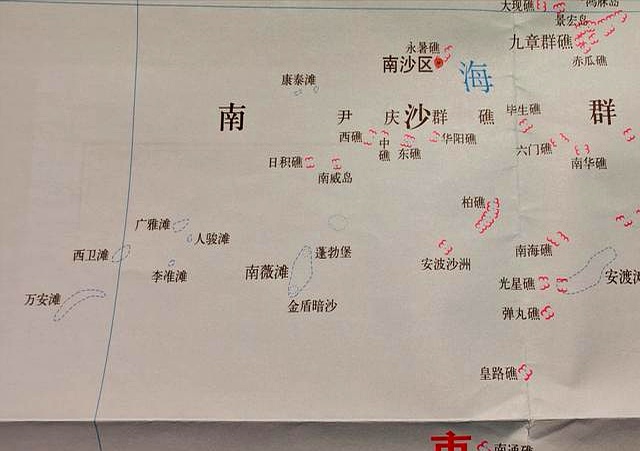 大现礁
鸿庥岛
景宏岛
九章群礁
永暑礁
南沙区
赤瓜礁
海
康泰滩
南
尹庆群礁
沙
群
毕生礁
西礁
中礁
东礁
华阳礁
六门礁
日积礁
南威岛
南华礁
柏礁
广雅滩
人骏滩
西卫滩
李准滩
南薇滩
蓬勃堡
安波沙洲
南海礁
光星礁
安渡滩
万安滩
金盾暗沙
弹丸礁
皇路礁
南通礁